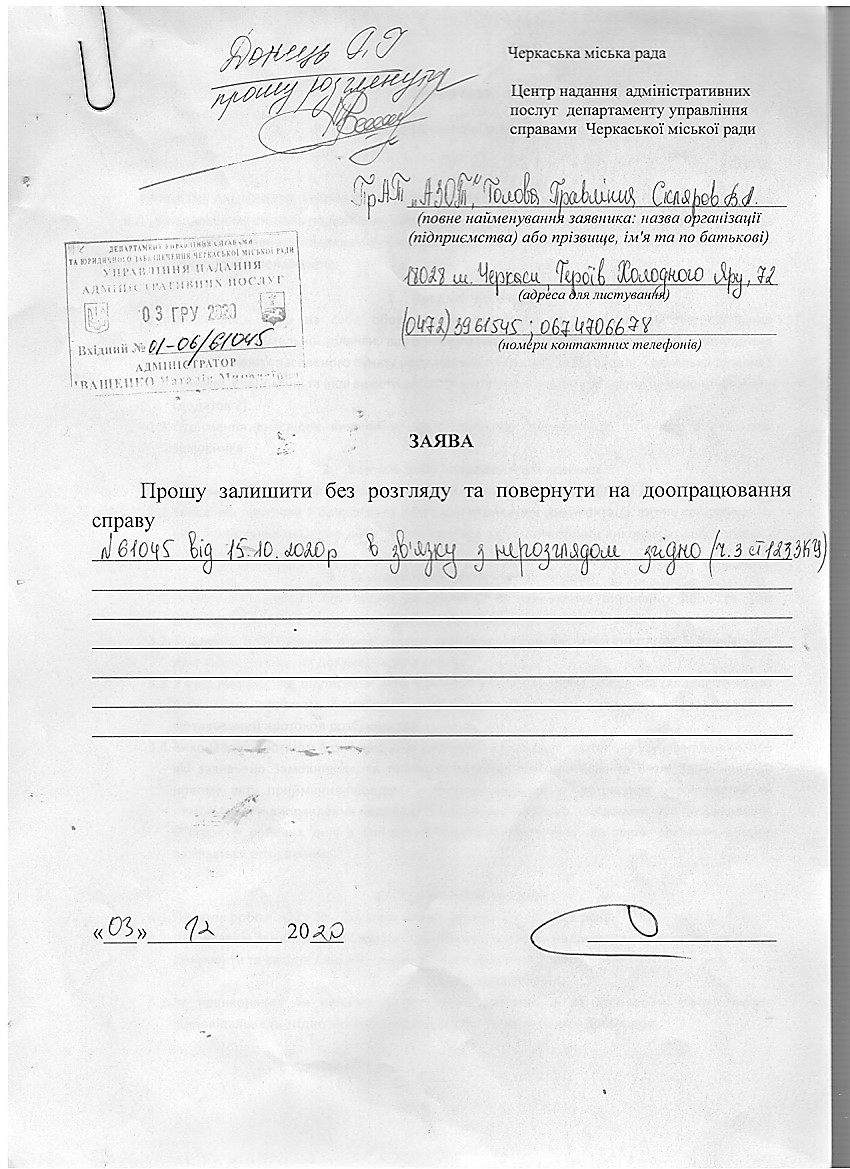 Донець Л.І
прошу розглянути
Черкаська міська рада
Центр надання адміністративних
послуг департаменту управління
справами Черкаської міської ради
ПрАТ „АЗОТ", Голова Правління Скляров В.Л.
(повне найменування заявника: назва організації
(підприємства) або прізвище, ім'я та по батькові)
18028 м. Черкаси, Героїв Холодного Яру, 72
(адреса для листування)
(0472) 3961545 ; 0674706678
(номери контактних телефонів)
ДЕПАРТАМЕНТ УПРАВЛІННЯ СПРАВАМИ
ТА ЮРИДИЧНОГО ЗАБЕЗПЕЧЕННЯ ЧЕРКАСЬКОЇ МІСЬКОЇ РАДИ
УПРАВЛІННЯ НАДАННЯ
АДМІНІСТРАТИВНИХ ПОСЛУГ
03 ГРУ 2020
Вхідний № 01-06/61045
АДМІНІСТРАТОР
ІВАЩЕНКО Наталія Миколаївна
ЗАЯВА
Прошу залишити без розгляду та повернути на доопрацювання
справу
№61045 від 15.10.2020р в зв'язку з нерозглядом згідно (ч.3 ст123ЗКУ)
«03» 12 2020